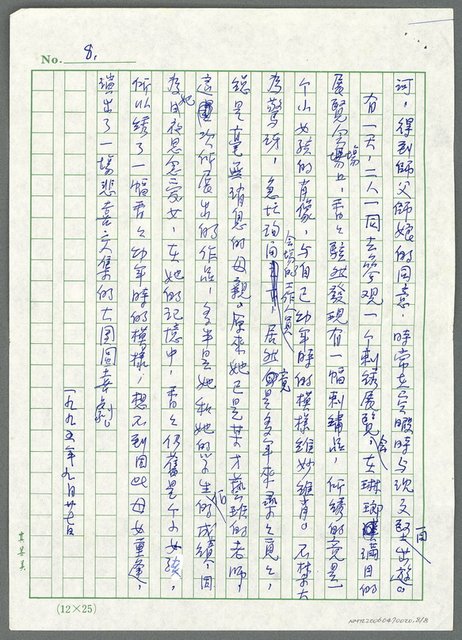 No. 8.
河,得到師父師娘的同意,時常在空暇時与玫文堅一同出遊。
有一天,二人一同去參观一个刺繡展覽会,在琳瑯滿目的
展覽会場中,香々駭然發現有一幅刺繡品,所繡的竟是一
个小女孩的肖像,与自己幼年時的模樣維妙維肖。不禁大
為驚訝,急忙詢问会場的工作人員,居然竟是多年來尋々覓々,
總是毫無消息的母親。原來她已是某才藝班的老師,
這次所展出的作品,多半是她和她的学生的成績,因
為她日夜思念愛女,在她的記憶中,香々仍舊是个小女孩,
所以繡了一幅香々幼年時的模樣;想不到因此母女重逢,
演出了一場悲喜交集的大团圓喜劇。
一九九五年九月廿七日
(12×25)